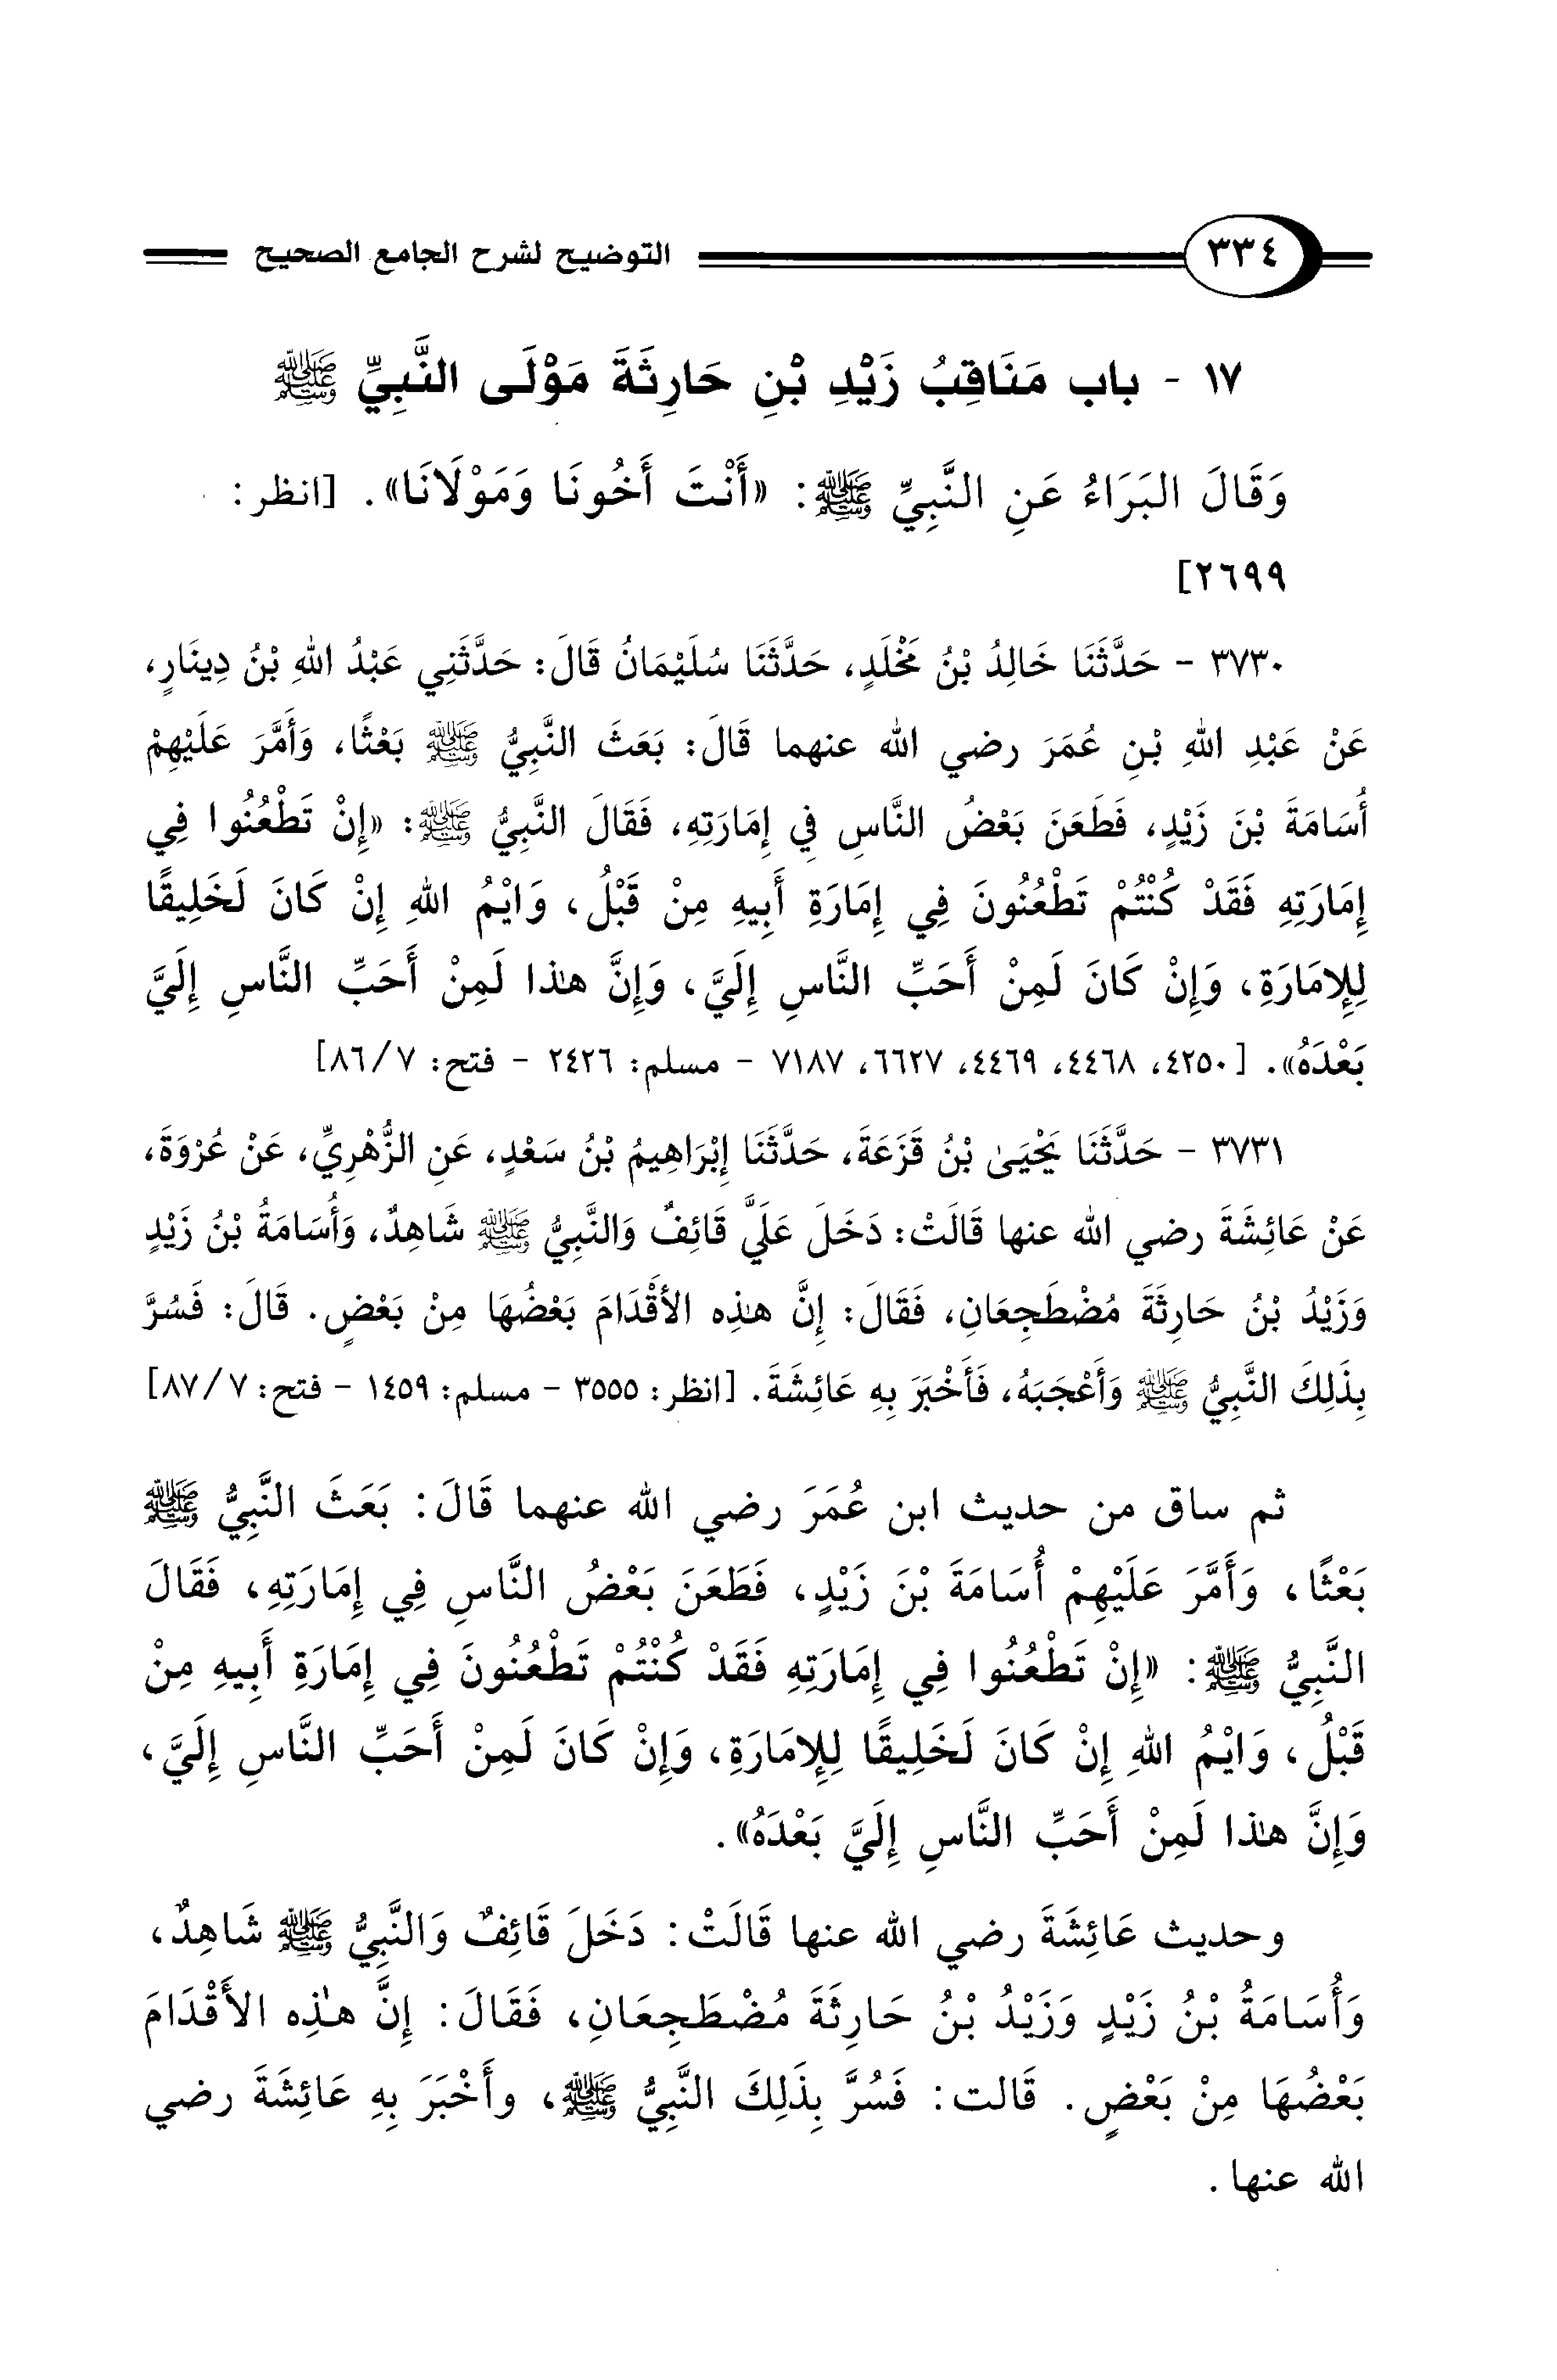 ٣٣٤ التوضيح لشرح الجامع الصحيح
١٧ - باب مَنَاقِبُ زَيْدِ بْنِ حَارِثَةَ مَوْلَى النَّبِيِّ ﷺ
وَقَالَ البَرَاءُ عَنِ النَّبِيِّ ﷺ: «أَنْتَ أَخُونَا وَمَوْلَانَا». [انظر:
٢٦٩٩]
٣٧٣٠ - حَدَّثَنَا خَالِدُ بْنُ مَخْلَدٍ، حَدَّثَنَا سُلَيْمَانُ قَالَ: حَدَّثَنِي عَبْدُ اللهِ بْنُ دِينَارٍ،
عَنْ عَبْدِ اللهِ بْنِ عُمَرَ رضي الله عنهما قَالَ: بَعَثَ النَّبِيُّ ﷺ بَعْثًا، وَأَمَّرَ عَلَيْهِمْ
أُسَامَةَ بْنَ زَيْدٍ، فَطَعَنَ بَعْضُ النَّاسِ فِي إِمَارَتِهِ، فَقَالَ النَّبِيُّ ﷺ: «إِنْ تَطْعُنُوا فِي
إِمَارَتِهِ فَقَدْ كُنْتُمْ تَطْعُنُونَ فِي إِمَارَةِ أَبِيهِ مِنْ قَبْلُ، وَايْمُ اللهِ إِنْ كَانَ لَخَلِيقًا
لِلإِمَارَةِ، وَإِنْ كَانَ لَمِنْ أَحَبِّ النَّاسِ إِلَيَّ، وَإِنَّ هذا لَمِنْ أَحَبِّ النَّاسِ إِلَيَّ
بَعْدَهُ». [٤٢٥٠، ٤٤٦٨، ٤٤٦٩، ٦٦٢٧، ٧١٨٧ - مسلم: ٢٤٢٦ - فتح: ٧/ ٨٦]
٣٧٣١ - حَدَّثَنَا يَحْيَىٰ بْنُ قَزَعَةَ، حَدَّثَنَا إِبْرَاهِيمُ بْنُ سَعْدٍ، عَنِ الزُّهْرِيِّ، عَنْ عُرْوَةَ،
عَنْ عَائِشَةَ رضي الله عنها قَالَتْ: دَخَلَ عَلَيَّ قَائِفٌ وَالنَّبِيُّ ﷺ شَاهِدٌ، وَأُسَامَةُ بْنُ زَيْدٍ
وَزَيْدُ بْنُ حَارِثَةَ مُضْطَجِعَانِ، فَقَالَ: إِنَّ هذِه الأَقْدَامَ بَعْضُهَا مِنْ بَعْضٍ. قَالَ: فَسُرَّ
بِذَلِكَ النَّبِيُّ ﷺ وَأَعْجَبَهُ، فَأَخْبَرَ بِهِ عَائِشَةَ. [انظر: ٣٥٥٥ - مسلم: ١٤٥٩ - فتح: ٧/ ٨٧]
ثم ساق من حديث ابن عُمَرَ رضي الله عنهما قَالَ: بَعَثَ النَّبِيُّ ﷺ
بَعْثًا، وَأَمَّرَ عَلَيْهِمْ أُسَامَةَ بْنَ زَيْدٍ، فَطَعَنَ بَعْضُ النَّاسِ فِي إِمَارَتِهِ، فَقَالَ
النَّبِيُّ ﷺ: «إِنْ تَطْعُنُوا فِي إِمَارَتِهِ فَقَدْ كُنْتُمْ تَطْعُنُونَ فِي إِمَارَةِ أَبِيهِ مِنْ
قَبْلُ، وَايْمُ اللهِ إِنْ كَانَ لَخَلِيقًا لِلإِمَارَةِ، وَإِنْ كَانَ لَمِنْ أَحَبِّ النَّاسِ إِلَيَّ،
وَإِنَّ هذا لَمِنْ أَحَبِّ النَّاسِ إِلَيَّ بَعْدَهُ».
وحديث عَائِشَةَ رضي الله عنها قَالَتْ: دَخَلَ قَائِفٌ وَالنَّبِيُّ ﷺ شَاهِدٌ،
وَأُسَامَةُ بْنُ زَيْدٍ وَزَيْدُ بْنُ حَارِثَةَ مُضْطَجِعَانِ، فَقَالَ: إِنَّ هذِه الأَقْدَامَ
بَعْضُهَا مِنْ بَعْضٍ. قَالت: فَسُرَّ بِذَلِكَ النَّبِيُّ ﷺ، وأَخْبَرَ بِهِ عَائِشَةَ رضي
الله عنها.